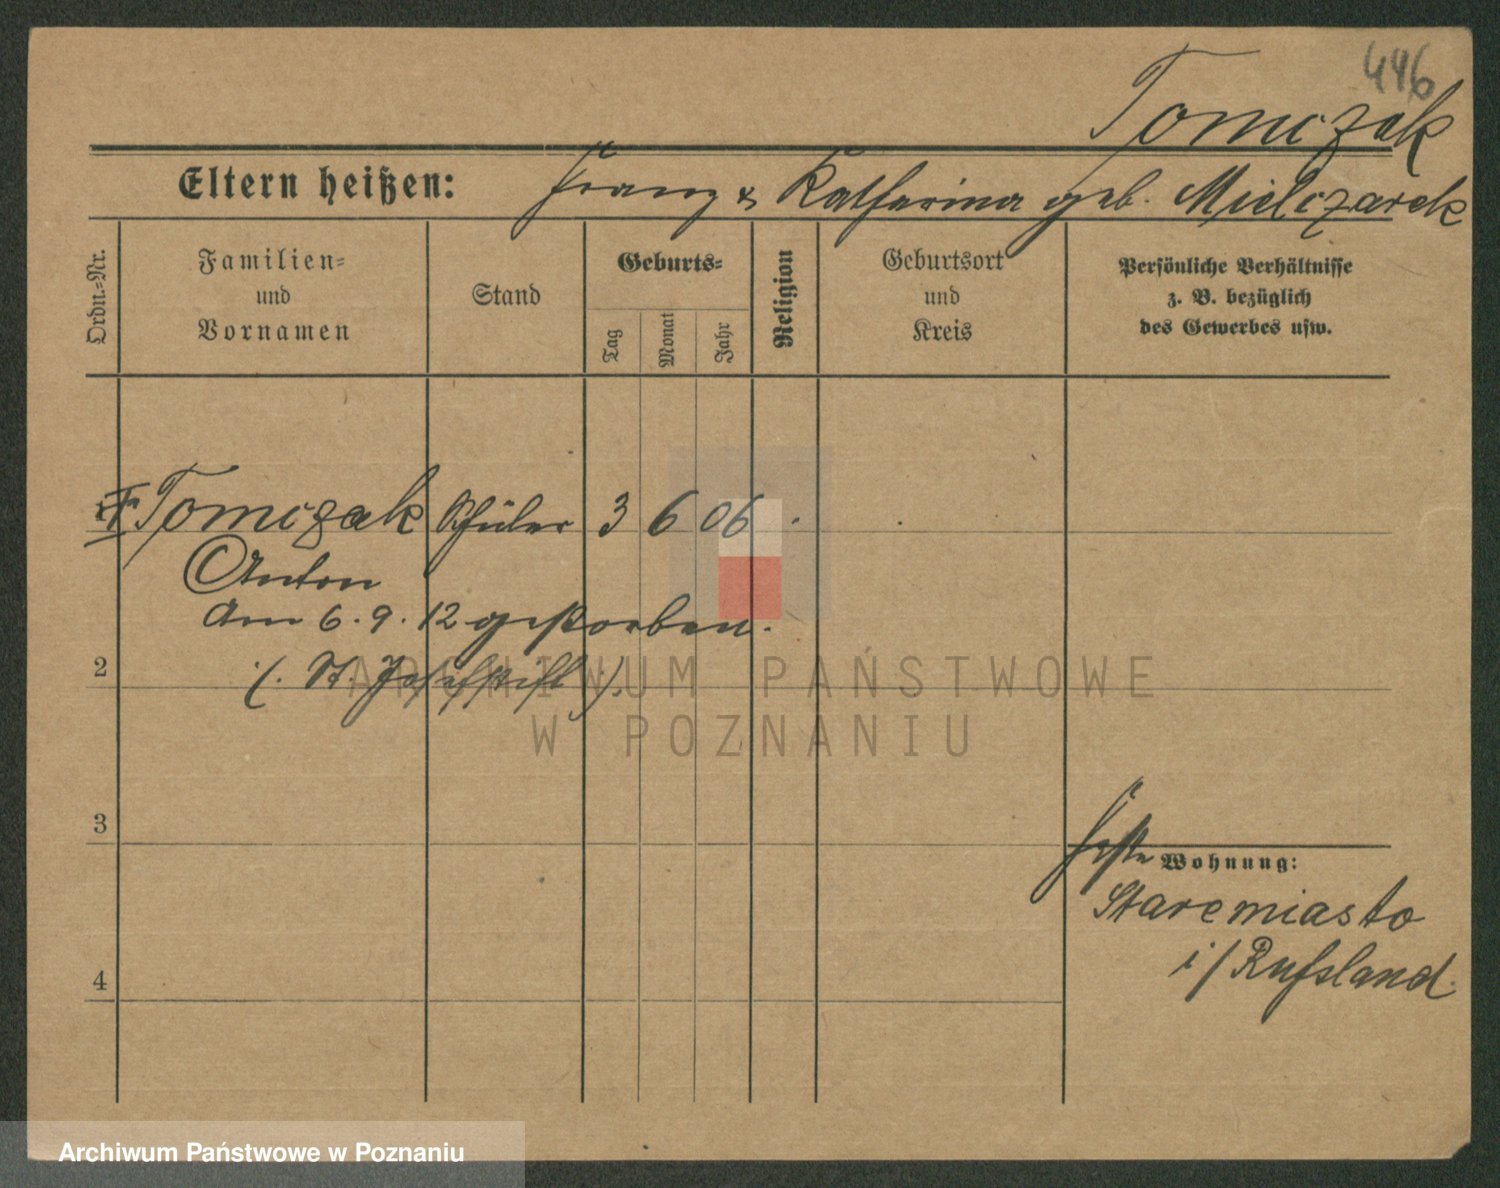 446
Tomczak
Eltern heißen: Franz & Katharina geb. Mielczarek
Ordn.-Nr.
Familien-
und
Vornamen
Stand
Geburts-
Tag
Monat
Jahr
Religion
Geburtsort
und
Kreis
Persönliche Verhältnisse
z. B. bezüglich
des Gewerbes usw.
Tomczak Schüler 3 6 06
Anton
am 6.9.12 gestorben.
2
(. St. Josefstift .).
ARCHIWUM PAŃSTWOWE
W POZNANIU
3
feste Wohnung:
Staremiasto
i/ Rußland.
4
Archiwum Państwowe w Poznaniu